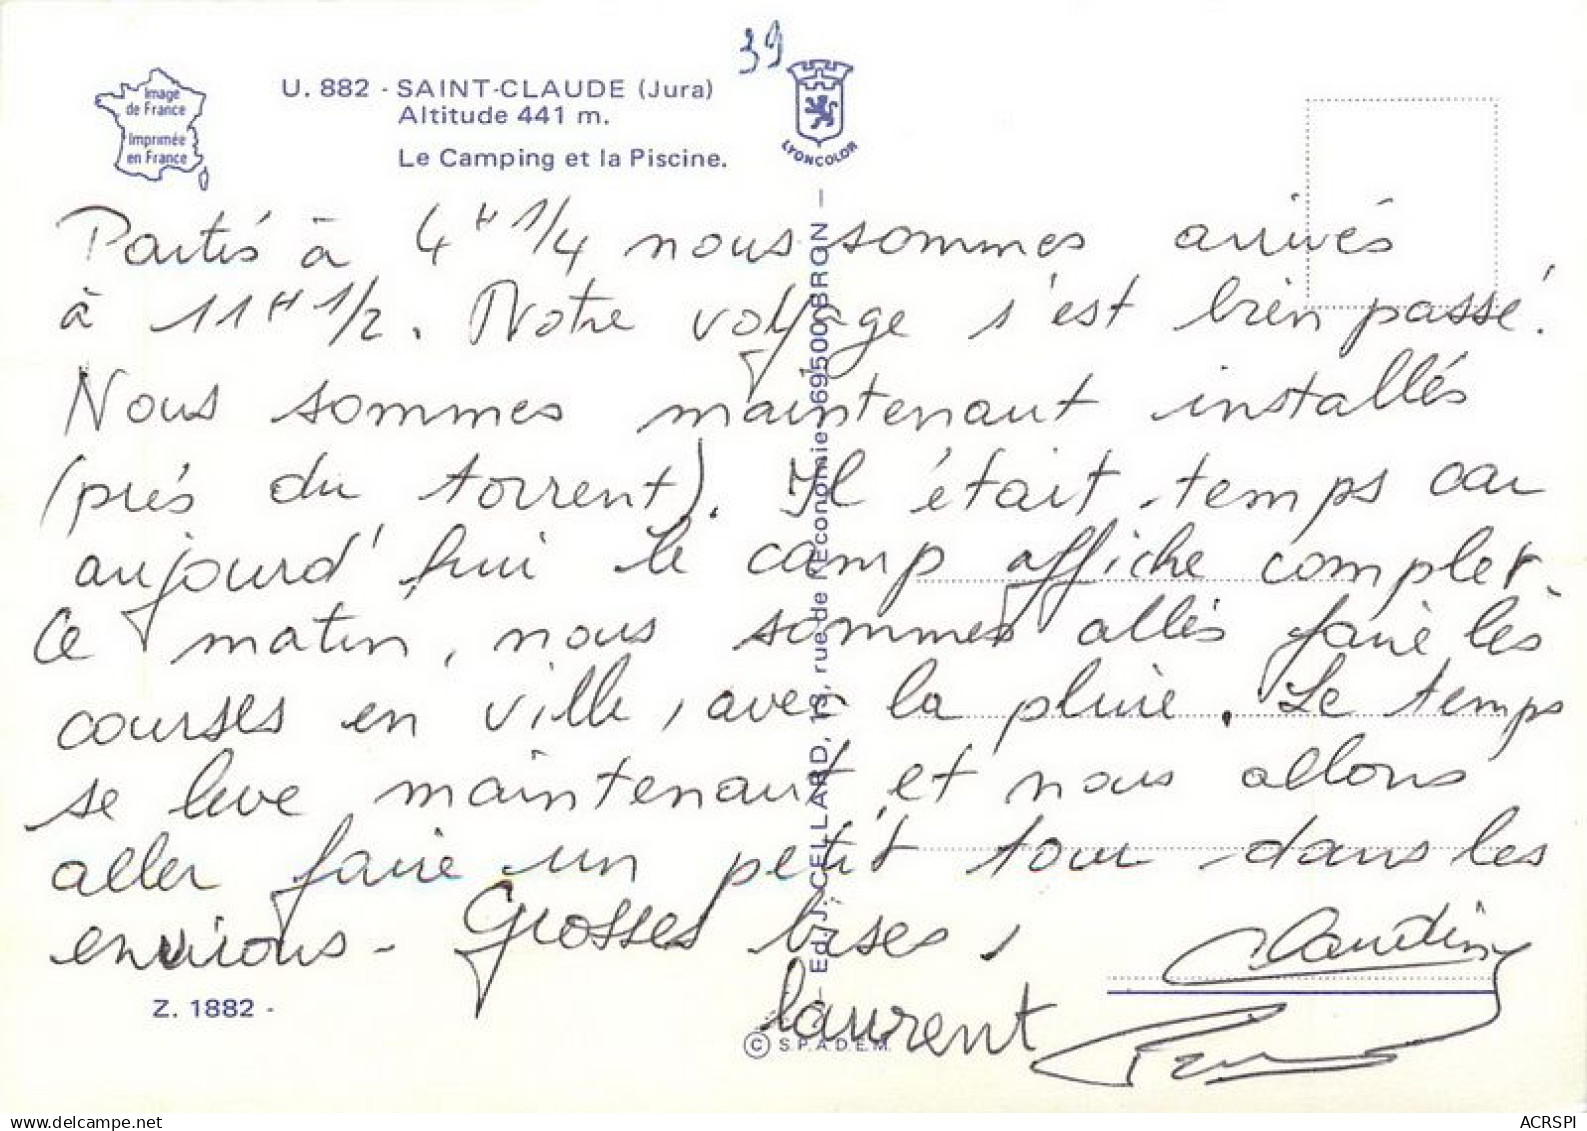 39
Image
de France
Imprimée
en France
U. 882 - SAINT-CLAUDE (Jura)
Altitude 441 m.
Le Camping et la Piscine.
LYONCOLOR
Partis à 4 H 1/4 nous sommes arrivés
à 11 H 1/2. Notre voyage s'est bien passé.
Nous sommes maintenant installés
(près du torrent). Il était temps car
aujourd'hui le camp affiche complet.
Ce matin, nous sommes allés faire les
courses en ville, avec la pluie. Le temps
se lève maintenant et nous allons
aller faire un petit tour dans les
environs - Grosses bises,
Claudine
laurent
Z. 1882 -
Ed. J. CELLARD, rue de l'Economie - 69500 BRON -
© S.P.A.D.E.M.
www.delcampe.net
ACRSPI